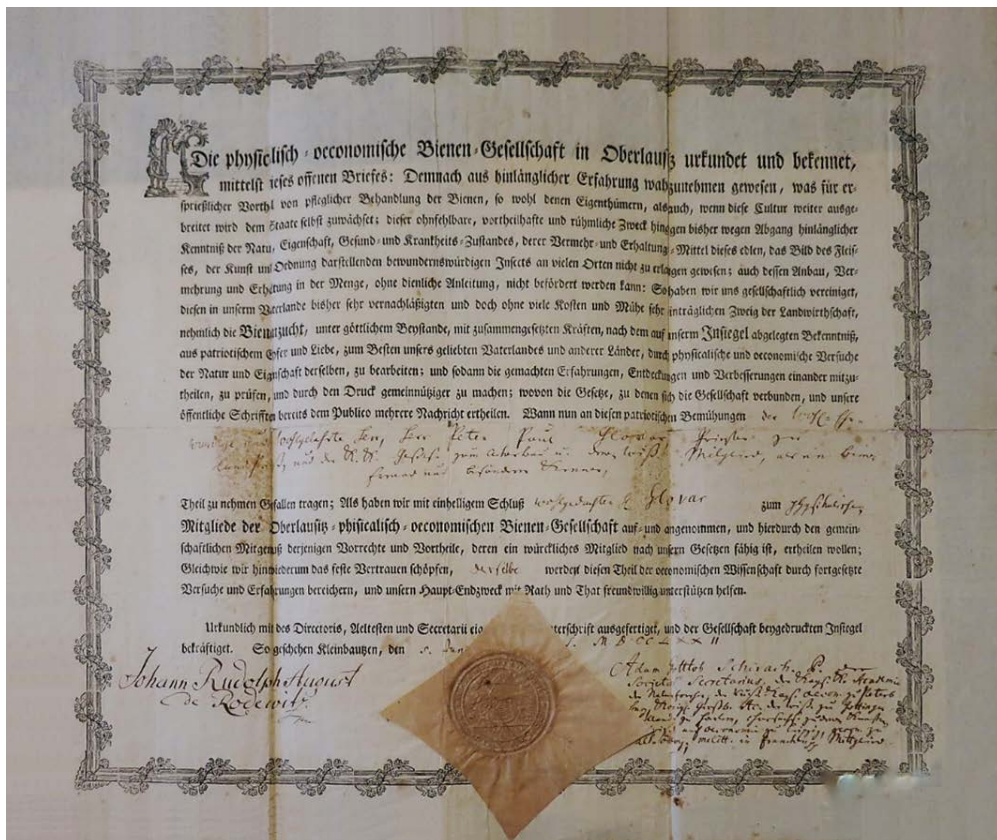 Die physicalisch-oeconomische Bienen-Gesellschaft in Oberlausitz urkundet und bekennet,
mittelst ieses offenen Briefes: Demnach aus hinlänglicher Erfahrung wahzunehmen gewesen, was für er-
sprießlicher Vorthl von pfleglicher Behandlung der Bienen, so wohl denen Eigenthümern, als auch, wenn diese Cultur weiter ausge-
breitet wird dem Staate selbst zuwächset: dieser ohnfehlbare, vortheilhafte und rühmliche Zweck hingegen bisher wegen Abgang hinlänglicher
Kenntniß der Natu, Eigenschaft, Gesund- und Krankheits-Zustandes, derer Vermehr- und Erhaltung-Mittel dieses edlen, das Bild des Fleis-
ses, der Kunst und Ordnung darstellenden bewundernswürdigen Insects an vielen Orten nicht zu erlangen gewesen; auch dessen Anbau, Ver-
mehrung und Erhaltung in der Menge, ohne dienliche Anleitung, nicht befördert werden kann: So haben wir uns gesellschaftlich vereiniget,
diesen in unserm Vaterlande bisher sehr vernachläßigten und doch ohne viele Kosten und Mühe sehr einträglichen Zweig der Landwirthschaft,
nehmlich die Bienenzucht, unter göttlichem Beystande, mit zusammengesetzten Kräften, nach dem auf unserm Insiegel abgelegten Bekenntniß,
aus patriotischem Eyfer und Liebe, zum Besten unsers geliebten Vaterlandes und anderer Länder, durch physicalische und oeconomische Versuche
der Natur und Eigenschaft derselben, zu bearbeiten; und sodann die gemachten Erfahrungen, Entdeckungen und Verbesserungen einander mitzu-
theilen, zu prüfen, und durch den Druck gemeinnütziger zu machen; wovon die Gesetze, zu denen sich die Gesellschaft verbunden, und unsere
öffentliche Schriften bereits dem Publico mehrere Nachricht ertheilen. Wann nun an diesen patriotischen Bemühungen der
Herr Peter Paul Glovar Priester
und der K. K. Mitglied,
Theil zu nehmen Gefallen tragen; Als haben wir mit einhelligem Schluß Glovar zum
Mitgliede der Oberlausitz-phisicalisch-oeconomischen Bienen-Gesellschaft auf- und angenommen, und hierdurch den gemein-
schaftlichen Mitgenuß derjenigen Vorrechte und Vortheile, deren ein würckliches Mitglied nach unsern Gesetzen fähig ist, ertheilen wollen;
Gleichwie wir hinwiederum das feste Vertrauen schöpfen, derselbe werden diesen Theil der oeconomischen Wissenschaft durch fortgesetzte
Versuche und Erfahrungen bereichern, und unsern Haupt-Endzweck mit Rath und That freundwillig unterstützen helfen.
Urkundlich mit des Directoris, Aeltesten und Secretarii terschrift ausgefertiget, und der Gesellschaft beygedruckten Insiegel
bekräftiget. So geschehen Kleinbautzen, den
Johann Rudolph August
de Rodewitz
Adam Gottlob Schirach
Societ. Secretarius, der
Mitglied